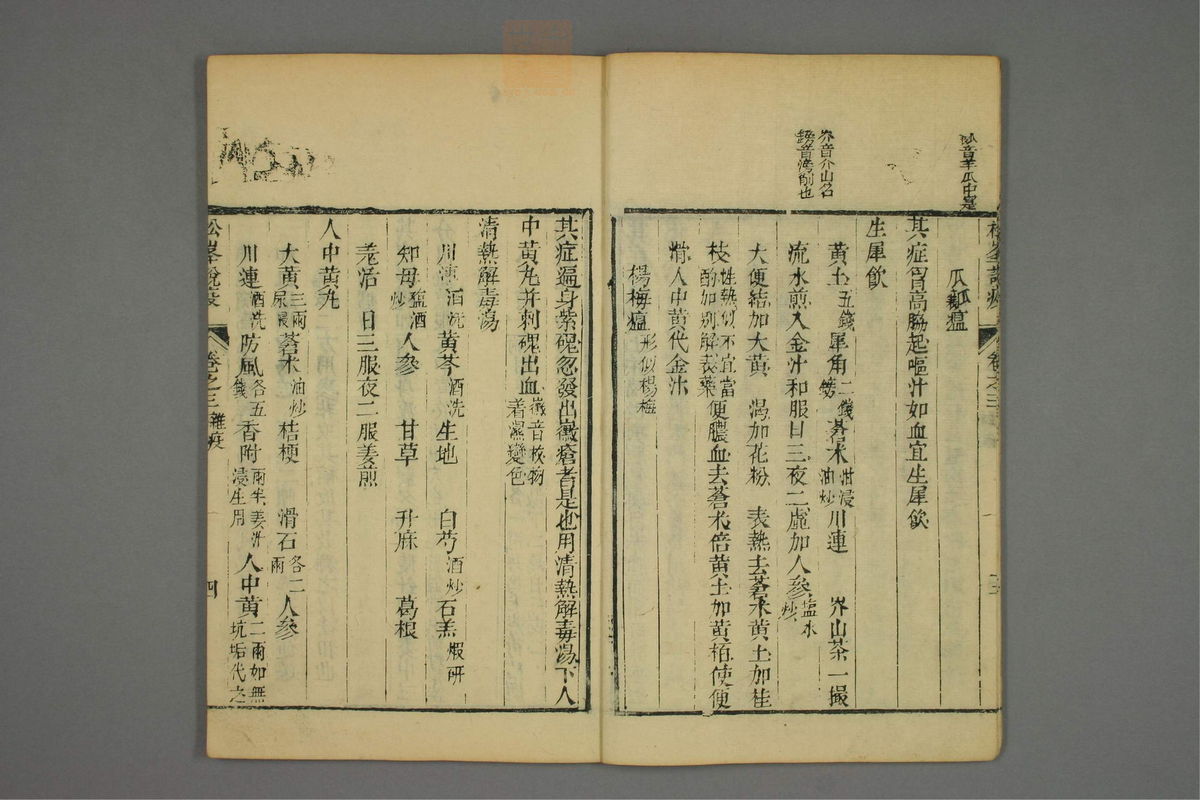 瓜瓤瘟
其症胷高脇起嘔汁如血宜生犀飲
生犀飲
黃土五錢犀角二錢鎊蒼朮泔浸油炒川連 岕山茶一撮
流水煎入金汁和服日三夜二虛加人參鹽水炒
大便結加大黃 渴加花粉 表熱去蒼朮黃土加桂
枝性熱似不宜當酌如別解表藥便膿血去蒼朮倍黃土加黃栢便
滑人中黃代金汁
楊梅瘟形似楊梅
岕音介山名
鎊音滂削也
其症遍身紫磈忽發出黴瘡者是也用清熱解毒湯下人
中黃丸并刺磈出血黴音枚物着濕變色
清熱解毒湯
川連酒洗黃芩酒洗生地 白芍酒炒石羔煅研
知母鹽酒炒人參 甘草 升麻 葛根
羗活 日三服夜二服姜煎
人中黃丸
大黃三兩尿浸蒼朮油炒桔梗 滑石各二兩人參
川連酒洗防風各五錢香附兩半姜汁浸生用人中黃二兩如無坑垢代之
松峯說疫 卷之三 雜疫 四